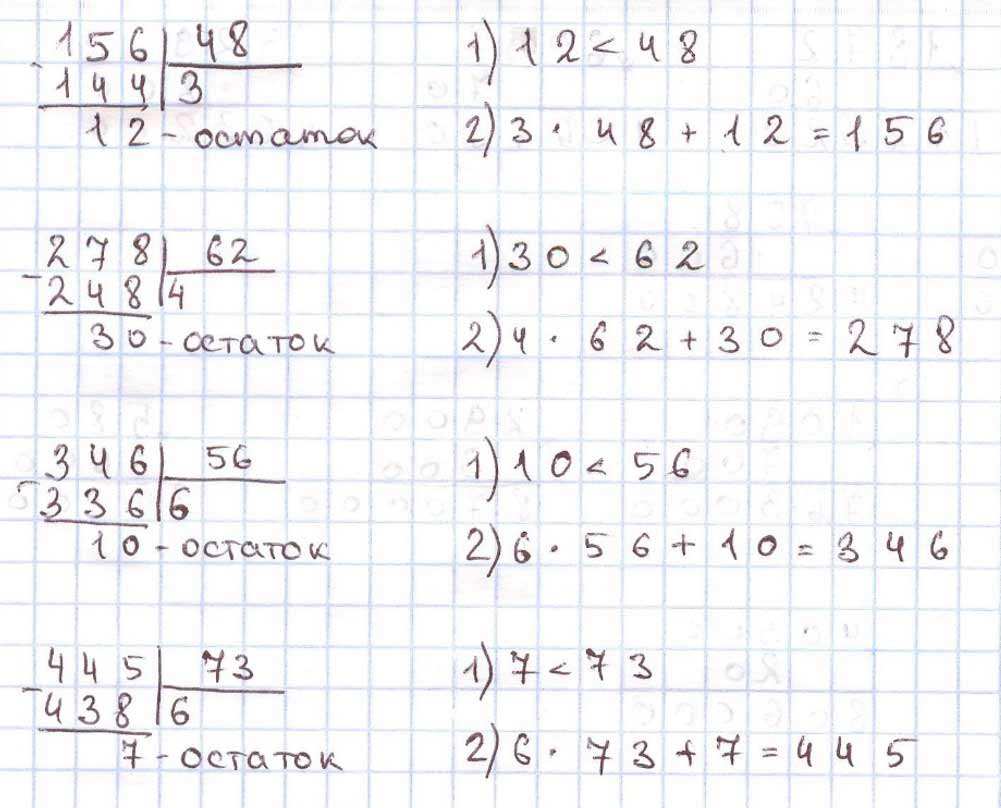 156 48 1) 12 < 48
- 144 3
12 - остаток 2) 3 · 48 + 12 = 156
278 62 1) 30 < 62
- 248 4
30 - остаток 2) 4 · 62 + 30 = 278
346 56 1) 10 < 56
- 336 6
10 - остаток 2) 6 · 56 + 10 = 346
445 73 1) 7 < 73
- 438 6
7 - остаток 2) 6 · 73 + 7 = 445